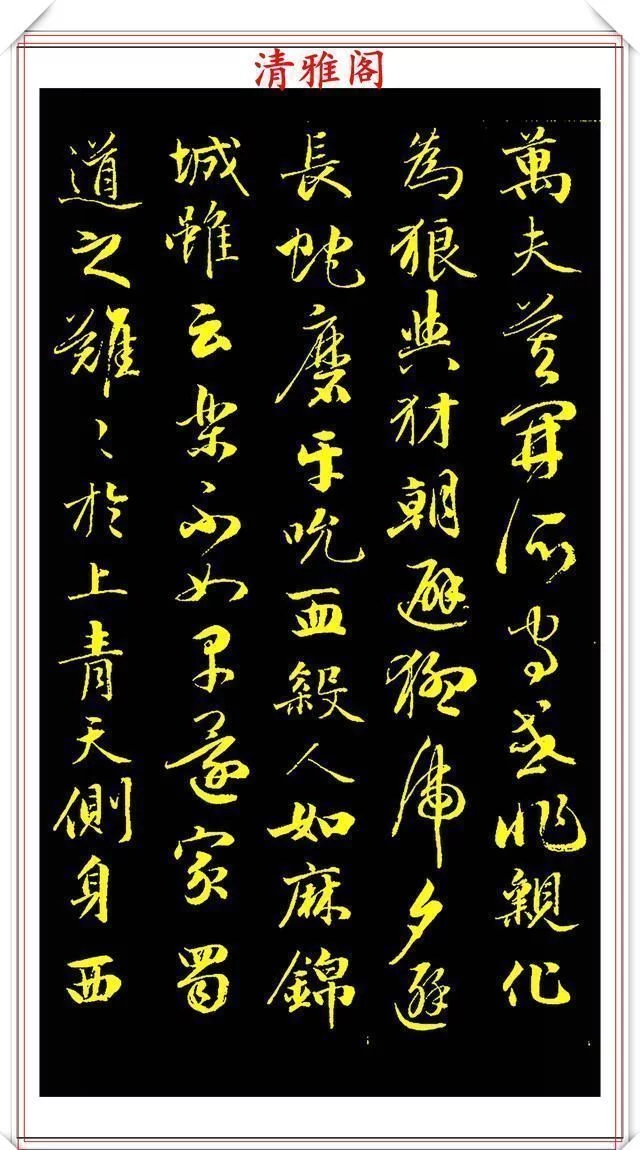 清雅阁
萬夫莫開所守或匪親化
為狼與豺朝避猛虎夕避
長蛇磨牙吮血殺人如麻錦
城雖云樂不如早還家蜀
道之難〻於上青天側身西